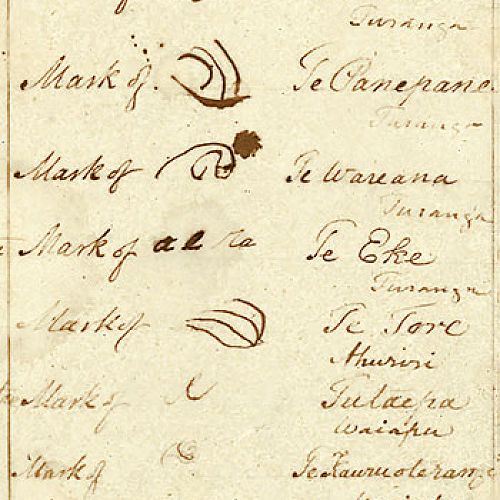 Turanga
Mark of Te Panepane
Turanga
Mark of Te Wareana
Turanga
Mark of Te Eke
Turanga
Mark of Te Tore
Ahuriri
Mark of Tutaepa
Waiapu
Mark of